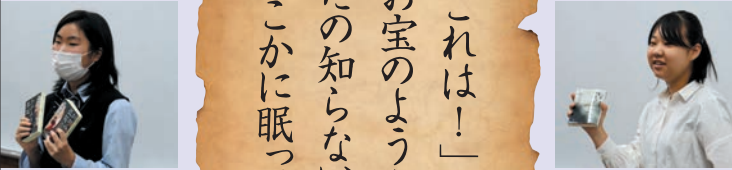 これは！」
お宝のよう
たの知らない
こかに眠っ